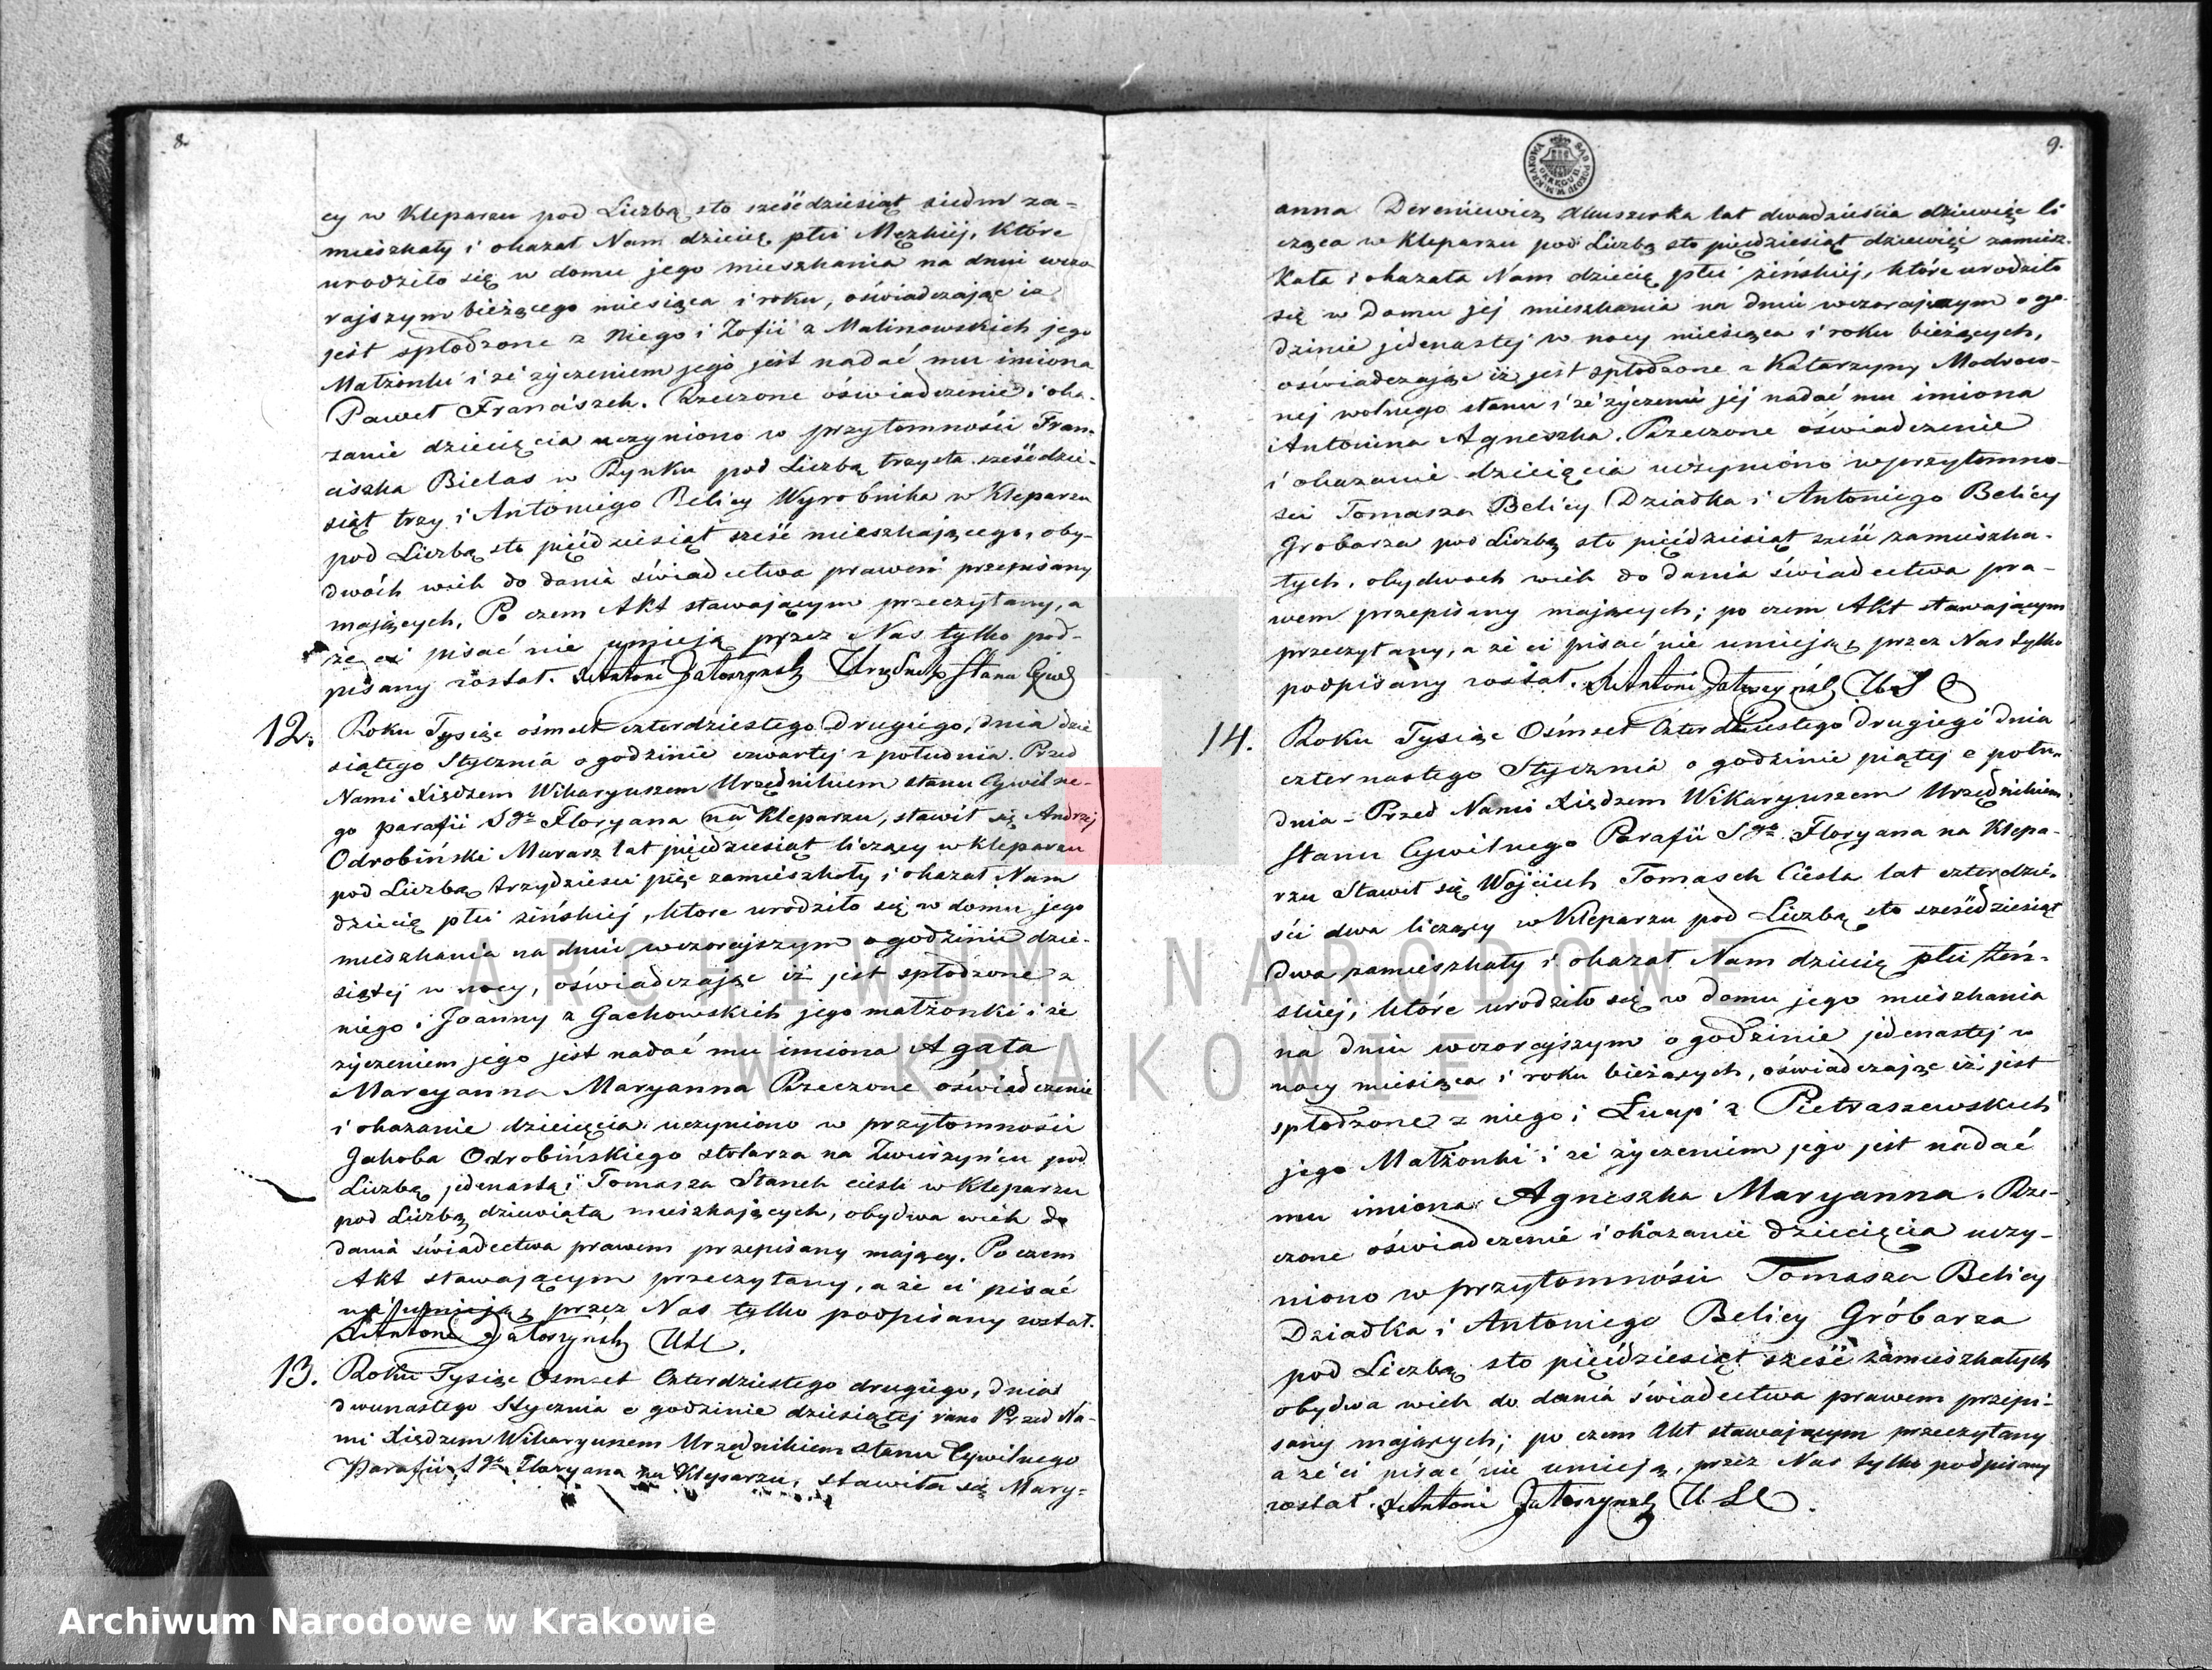 8.
cy w Kleparzu pod Liczbą sto sześćdziesiąt siedm za=
mieszkały i okazał Nam dziecię płci Męzkiej, które
urodziło się w domu jego mieszkania na dniu wczo
rajszym bieżącego miesiąca i roku, oświadczając iż
jest spłodzone z Niego i Zofii z Malinowskich jego
Małżonki i że życzeniem jego jest nadać mu imiona
Paweł Franciszek. Rzeczone oświadczenie i oka-
zanie dziecięcia uczyniono w przytomności Fran-
ciszka Bielas w Rynku pod Liczbą trzysta sześćdzie-
siąt trzy i Antoniego Belicy Wyrobnika w Kleparzu
pod Liczbą sto pięćdziesiąt sześć mieszkającego, oby-
dwóch wiek do dania świadectwa prawem przepisany
mających, Po czem Akt stawającym przeczytany, a
że ci pisać nie umieją przez Nas tylko pod-
pisany został. X Antoni Stanu Cywil
12. Roku Tysiąc ośmset czterdziestego Drugiego, dnia dzie
siątego Stycznia o godzinie czwartej z południa. Przed
Nami Xiędzem Wikaryuszem Urzędnikiem stanu Cywilne-
go parafii Sgo Floryana na Kleparzu, stawił się Andrzej
Odrobiński Murarz lat pięćdziesiąt liczący w Kleparzu
pod Liczbą trzydzieści pięć zamieszkały i okazał Nam
dziecię płci zińskiej, które urodziło się w domu jego
mieszkania na dniu wczorajszym o godzinie dzie-
siątej w nocy, oświadczając iż jest spłodzone z
niego i Joanny z Gachowskich jego małżonki i że
życzeniem jego jest nadać mu imiona Agata
Marcyanna Maryanna Rzeczone oświadczenie
i okazanie dziecięcia uczyniono w przytomności
Jakoba Odrobińskiego stolarza na Zwierzyńcu pod
Liczbą jedenastą i Tomasza Stanek cieśli w Kleparzu
pod Liczbą dziewiątą mieszkających, obydwa wiek do
dania świadectwa prawem przepisany mający. Po czem
Akt stawającym przeczytany, a że ci pisać
nie umieją, przez Nas tylko podpisany został.
X Antoni
13. Roku Tysiąc Osmset Czterdziestego drugiego, dnia
dwunastego Stycznia o godzinie dziesiątej rano Przed Na-
mi Xiędzem Wikaryuszem Urzędnikiem stanu Cywilnego
Parafii Sgo Floryana na Kleparzu, stawiła się Mary=
9.
anna Dereniewicz Akuszerka lat dwadzieścia dziewięć li
cząca w Kleparzu pod Liczbą sto pięćdziesiąt dziewięć zamiesz-
kała i okazała Nam dziecię płci żińskiej, które urodziło
się w domu jej mieszkania na dniu wczorajszym o go-
dzinie jedenastej w nocy miesiąca i roku bieżących,
oświadczając iż jest spłodzone z Katarzyny
nej wolnego stanu i że życzeniem jej nadać mu imiona
Antonina Agneszka. Rzeczone oświadczenie
i okazanie dziecięcia uczyniono w przytomno-
ści Tomasza Belicy Dziadka i Antoniego Belicy
Grobarza pod Liczbą sto pięćdziesiąt sześć zamieszka-
łych, obydwoch wiek do dania świadectwa pra-
wem przepisany mających; po czem Akt stawającym
przeczytany, a że ci pisać nie umieją, przez Nas tylko
podpisany został. X Antoni
14. Roku Tysiąc Ośmset Czterdziestego drugiego dnia
czternastego Stycznia o godzinie piątej z połu-
dnia – Przed Nami Xiędzem Wikaryuszem Urzędnikiem
Stanu Cywilnego Parafii Sgo Floryana na Klepa-
rzu Stawił się Wojciech Tomasek Cieśla lat czterdzie-
ści dwa liczący w Kleparzu pod Liczbą sto sześćdziesiąt
dwa zamieszkały i okazał Nam dziecię płci żeń-
skiej, które urodziło się w domu jego mieszkania
na dniu wczorajszym o godzinie jedenastej w
nocy miesiąca i roku bieżących, oświadczając iż jest
spłodzone z niego i Łucyi z Pietraszewskich
jego Małżonki i że życzeniem jego jest nadać
mu imiona Agneszka Maryanna. Rze-
czone oświadczenie i okazanie dziecięcia uczy-
niono w przytomności Tomasza Belicy
Dziadka i Antoniego Belicy Gróbarza
pod Liczbą sto pięćdziesiąt sześć zamieszkałych
obydwa wiek do dania świadectwa prawem przepi-
sany mających; po czem Akt stawającym przeczytany
a że ci pisać nie umieją, przez Nas tylko podpisany
został. X Antoni
ARCHIWUM NARODOWE
W KRAKOWIE
Archiwum Narodowe w Krakowie